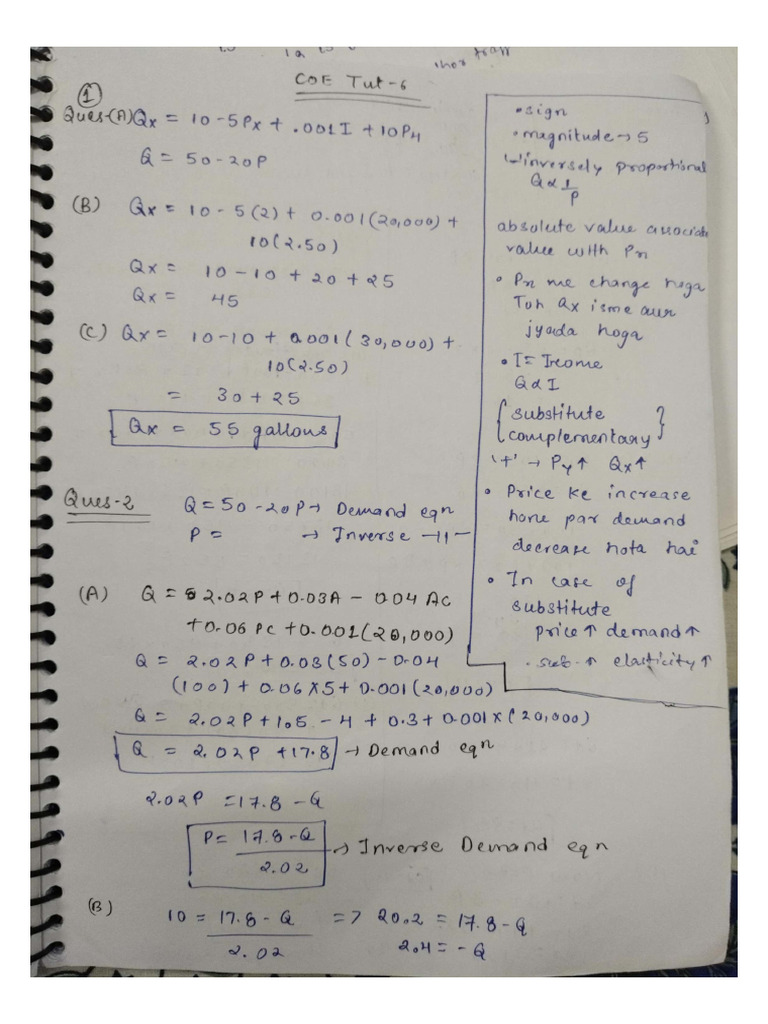 COE Tut-6
①
Ques-(A) Qx = 10-5Px + .001I + 10Py
Q = 50-20P
(B) Qx = 10-5(2) + 0.001(20,000) +
10(2.50)
Qx = 10-10 + 20 + 25
Qx = 45
(C) Qx = 10-10 + 0.001(30,000) +
10(2.50)
= 30+25
Qx = 55 gallons
• sign
• magnitude → 5
↳ inversely proportional
Q∝1/P
absolute value associate
value with Px
• Px me change hoga
Toh Qx isme aur
jyada hoga
• I = Income
Q∝I
{substitute
complementary}
'+' → Py↑ Qx↑
• Price ke increase
hone par demand
decrease hota hai
• In case of
substitute
price↑ demand↑
• sub.↑ elasticity↑
Ques-2 Q = 50-20P → Demand eqn
P = → Inverse -11-
(A) Q = 2.02P + 0.03A - 0.04 AC
+0.06 PC + 0.001(20,000)
Q = 2.02P + 0.03(50) - 0.04
(100) + 0.06×5 + 0.001(20,000)
Q = 2.02P + 1.5 - 4 + 0.3 + 0.001×(20,000)
Q = 2.02P + 17.8 → Demand eqn
2.02P = 17.8 - Q
P = 17.8-Q/2.02 → Inverse Demand eqn
(B) 10 = 17.8 - Q/2.02 => 20.2 = 17.8 - Q
2.4 = - Q